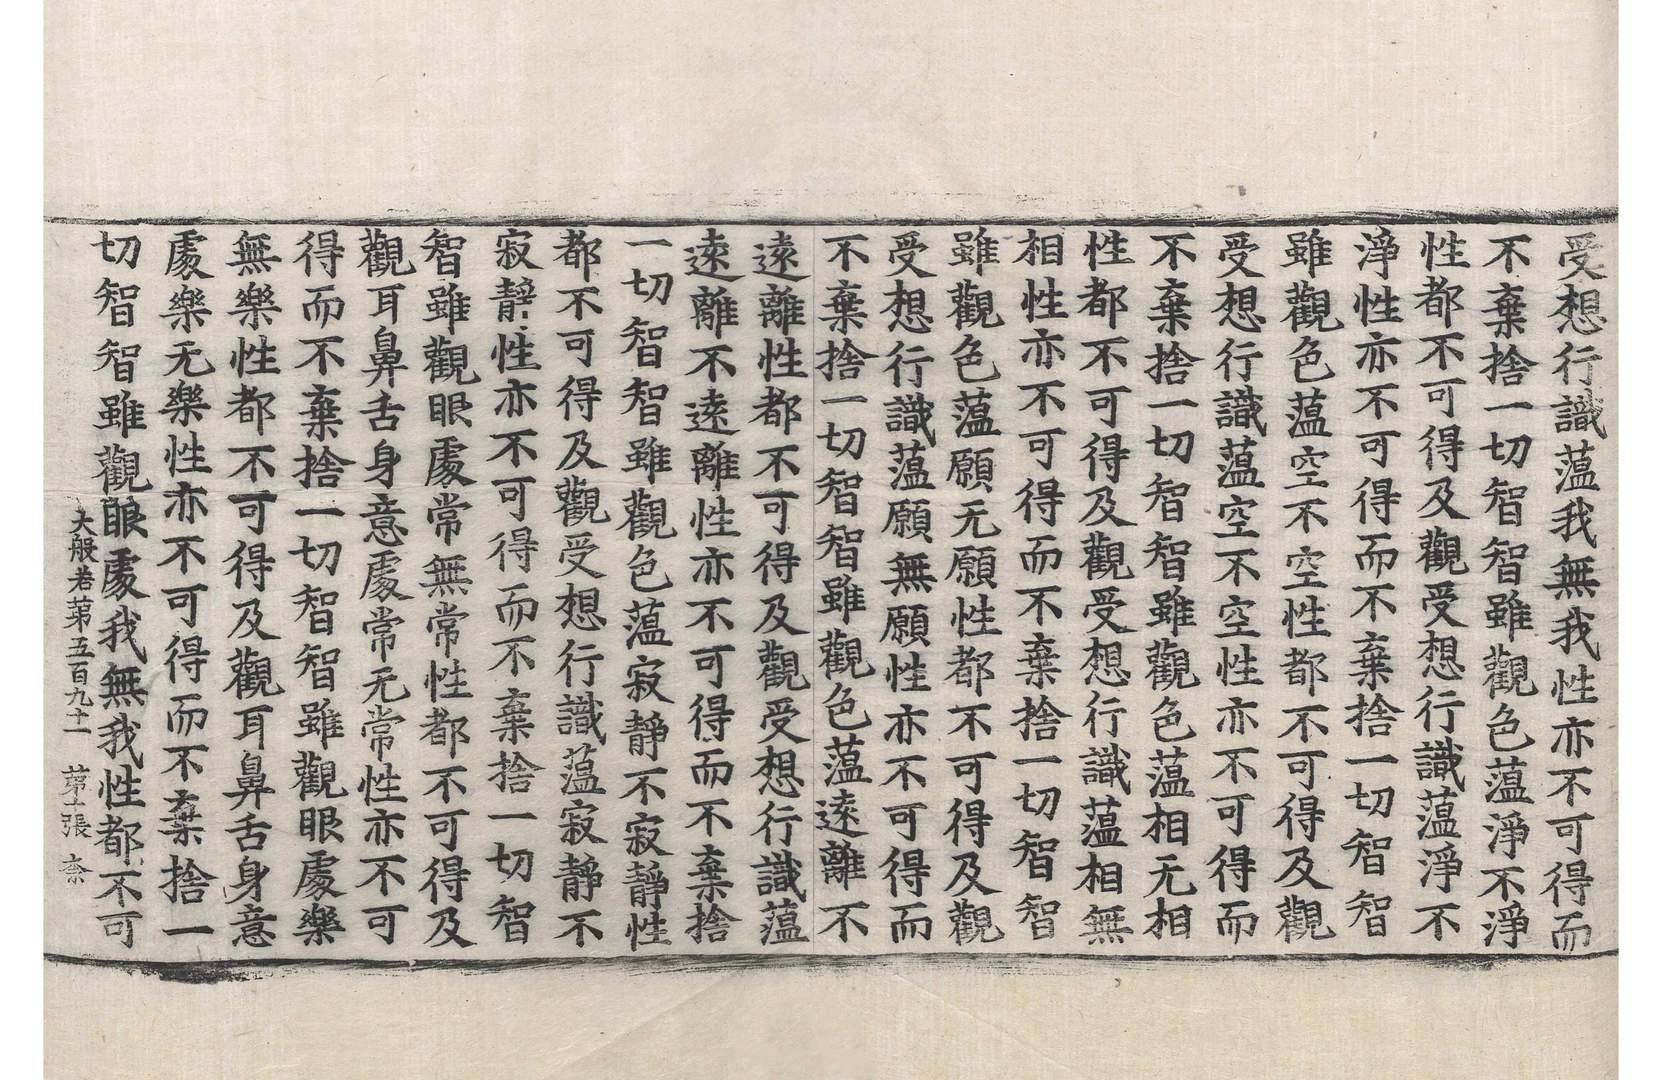 受想行識薀我無我性亦不可得而
不棄捨一切智智雖觀色薀淨不淨
性都不可得及觀受想行識薀淨不
淨性亦不可得而不棄捨一切智智
雖觀色薀空不空性都不可得及觀
受想行識薀空不空性亦不可得而
不棄捨一切智智雖觀色薀相无相
性都不可得及觀受想行識薀相無
相性亦不可得而不棄捨一切智智
雖觀色薀願无願性都不可得及觀
受想行識薀願無願性亦不可得而
不棄捨一切智智雖觀色薀遠離不
遠離性都不可得及觀受想行識薀
遠離不遠離性亦不可得而不棄捨
一切智智雖觀色薀寂静不寂静性
都不可得及觀受想行識薀寂静不
寂静性亦不可得而不棄捨一切智
智雖觀眼處常無常性都不可得及
觀耳鼻舌身意處常无常性亦不可
得而不棄捨一切智智雖觀眼處樂
無樂性都不可得及觀耳鼻舌身意
處樂无樂性亦不可得而不棄捨一
切智智雖觀眼處我無我性都不可
大般若第五百九十一 第十張 柰